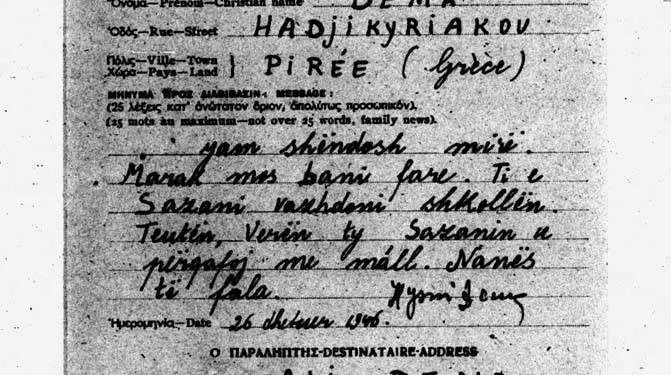 Ὄνομα—Prénom—Christian name DEMA
Ὁδός—Rue—Street HADjiKyRiAKOU
Πόλις—Ville—Town
Χώρα—Pays—Land } PiRÉE (Grèce)
ΜΗΝΥΜΑ ΠΡΟΣ ΔΙΑΒΙΒΑΣΙΝ - MESSAGE:
(25 λέξεις κατ' ἀνώτατον ὅριον, ἀπολύτως προσωπικόν).
(25 mots au maximum—not over 25 words, family news).
yam shëndosh mirë.
Marak mos bani fare. Ti e
Sazani vazhdoni shkollën.
Teutën, Verën ty Sazanin u
përqafoj me máll. Nanës
të fala. Hysni
Ἡμερομηνία—Date 26 dhetuer
Ο ΠΑΡΑΛΗΠΤΗΣ-DESTINATAIRE-ADDRESS